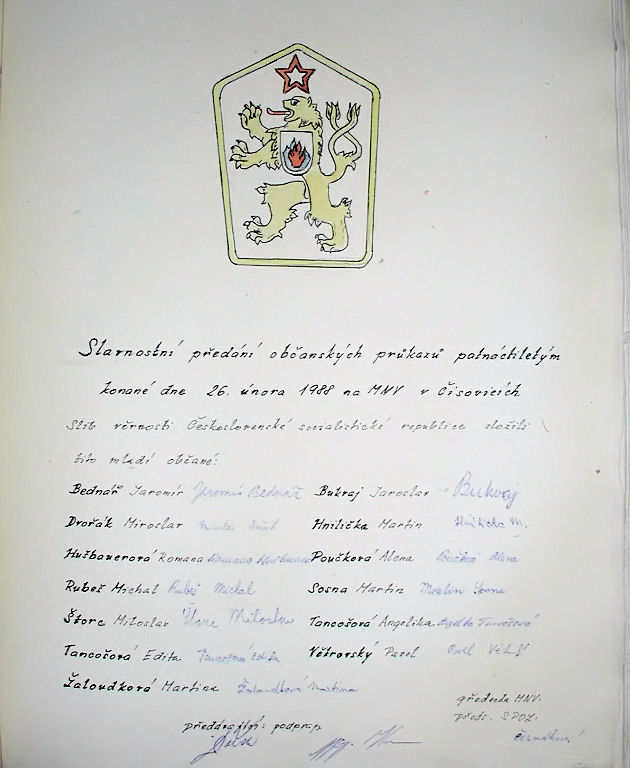 Slavnostní předání občanských průkazů patnáctiletým
konané dne 26. února 1988 na MNV v Čisovicích
Slib věrnosti Československé socialistické republice složili
tito mladí občané:
Bednář Jaromír Jaromír Bednář Bukvaj Jaroslav Bukvaj
Dvořák Miroslav Hnilička Martin Hnilička M.
Hušbauerová Romana Romana Hušbauerová Poučková Alena Poučková Alena
Rubeš Michal Rubeš Michal Sosna Martin Martin Sosna
Štorc Miloslav Štorc Miloslav Tancošová Angelika Angelika Tancošová
Tancošová Edita Tancošová Edita Větrovský Pavel Pavel
Žaloudková Martina Žaloudková Martina
předseda MNV:
předs. SPOZ:
podprap.